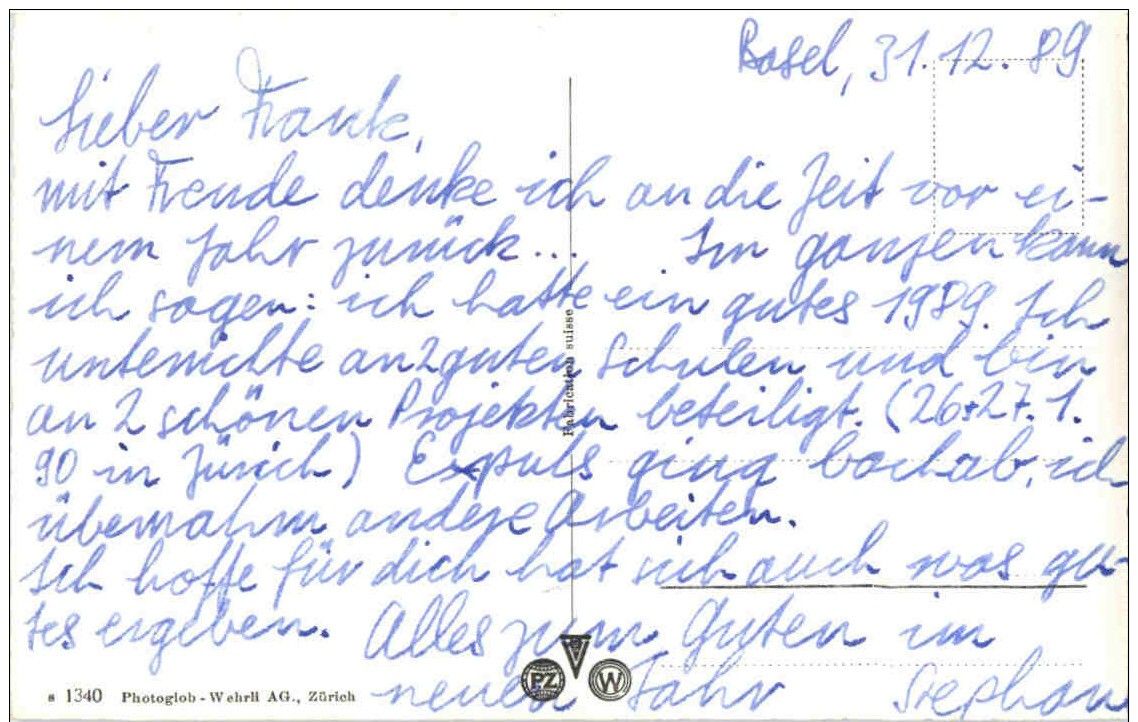 Basel, 31.12.89
Lieber Frank,
mit Freude denke ich an die Zeit vor ei-
nem Jahr zurück... Im ganzen kann
ich sagen: ich hatte ein gutes 1989. Ich
unterrichte an 2 guten Schulen und bin
an 2 schönen Projekten beteiligt. (26+27.1.
90 in Zürich) Expuls ging bachab, ich
übernahm andere Arbeiten.
Ich hoffe für dich hat sich auch was gu-
tes ergeben. Alles zum Guten im
neuen Jahr Stephan
Fabrication suisse
s 1340 Photoglob-Wehrli AG., Zürich
PZ W